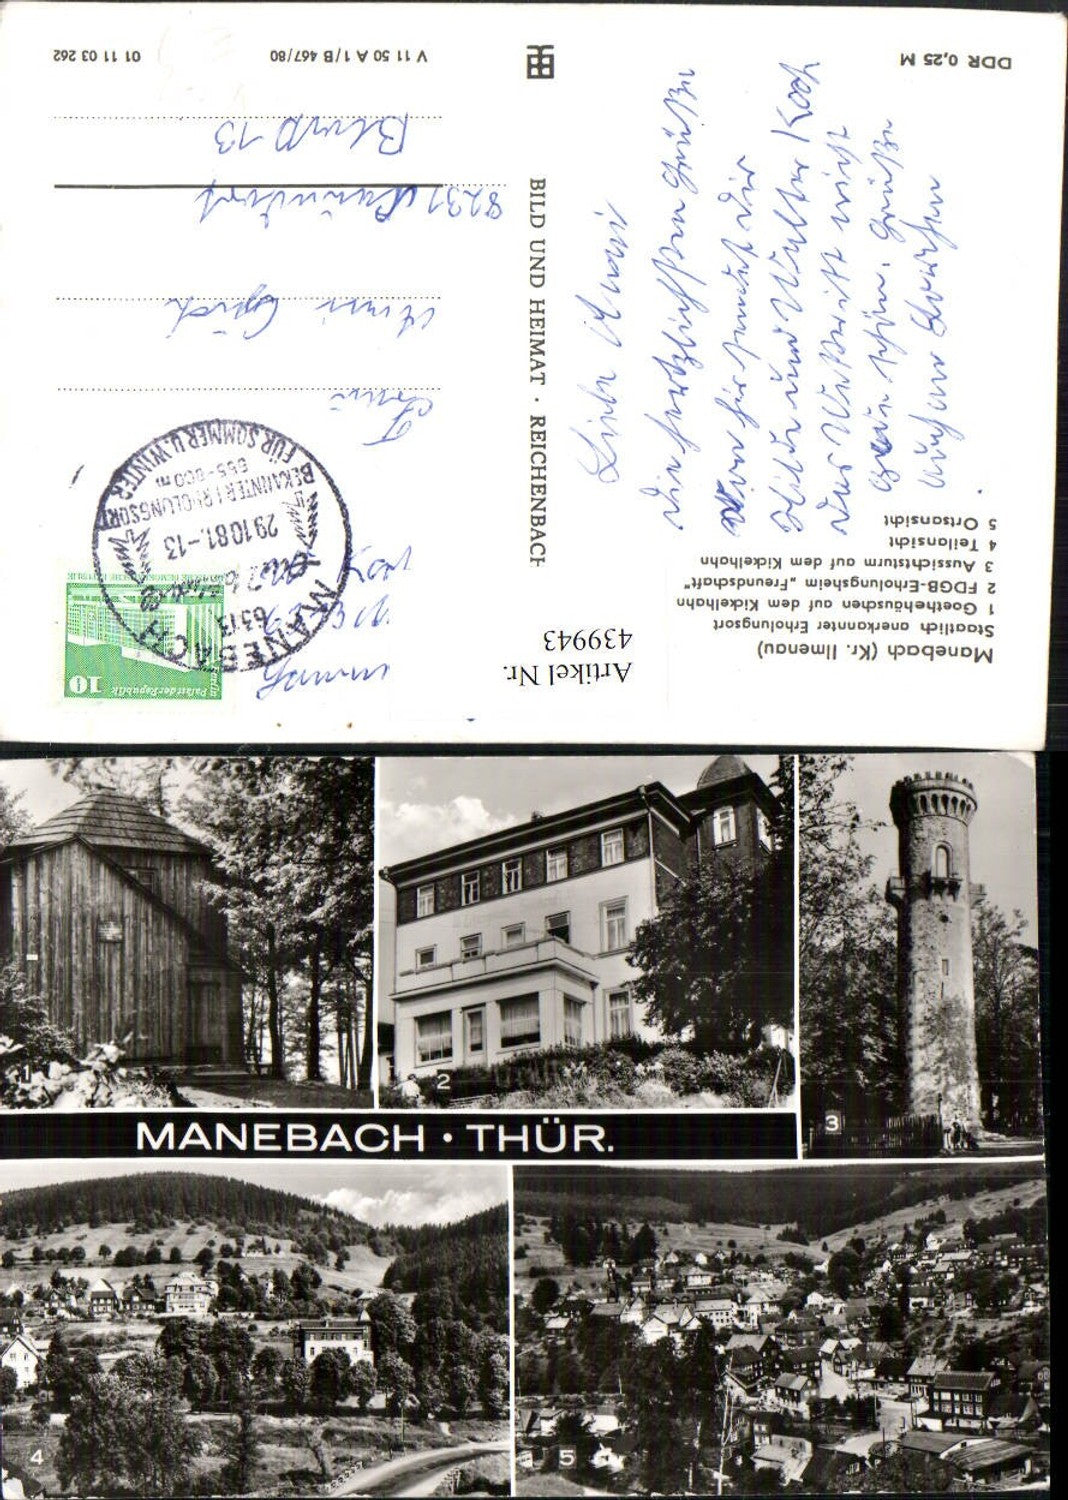 Manebach (Kr. Ilmenau)
Staatlich anerkannter Erholungsort
1 Goethehäuschen auf dem Kickelhahn
2 FDGB-Erholungsheim „Freundschaft"
3 Aussichtsturm auf dem Kickelhahn
4 Teilansicht
5 Ortsansicht
Artikel Nr.
439943
Liebe Anni
Die herzlichsten Grüße
von hier sendet Dir
Hilde und Walter Koch
Das Wetter ist nicht
schön. Grüße
auch an
DDR 0,25 M
BILD UND HEIMAT · REICHENBACH
V 11 50 A 1/B 467/80
01 11 03 262
Berlin
Palast der Republik
10
DEUTSCHE DEMOKRATISCHE REPUBLIK
MANEBACH
6317
29.10.81.-13
BEKANNTER ERHOLUNGSORT
FÜR SOMMER U. WINTER
Frau
Anni
Block 13
1
2
3
MANEBACH · THÜR.
4
5